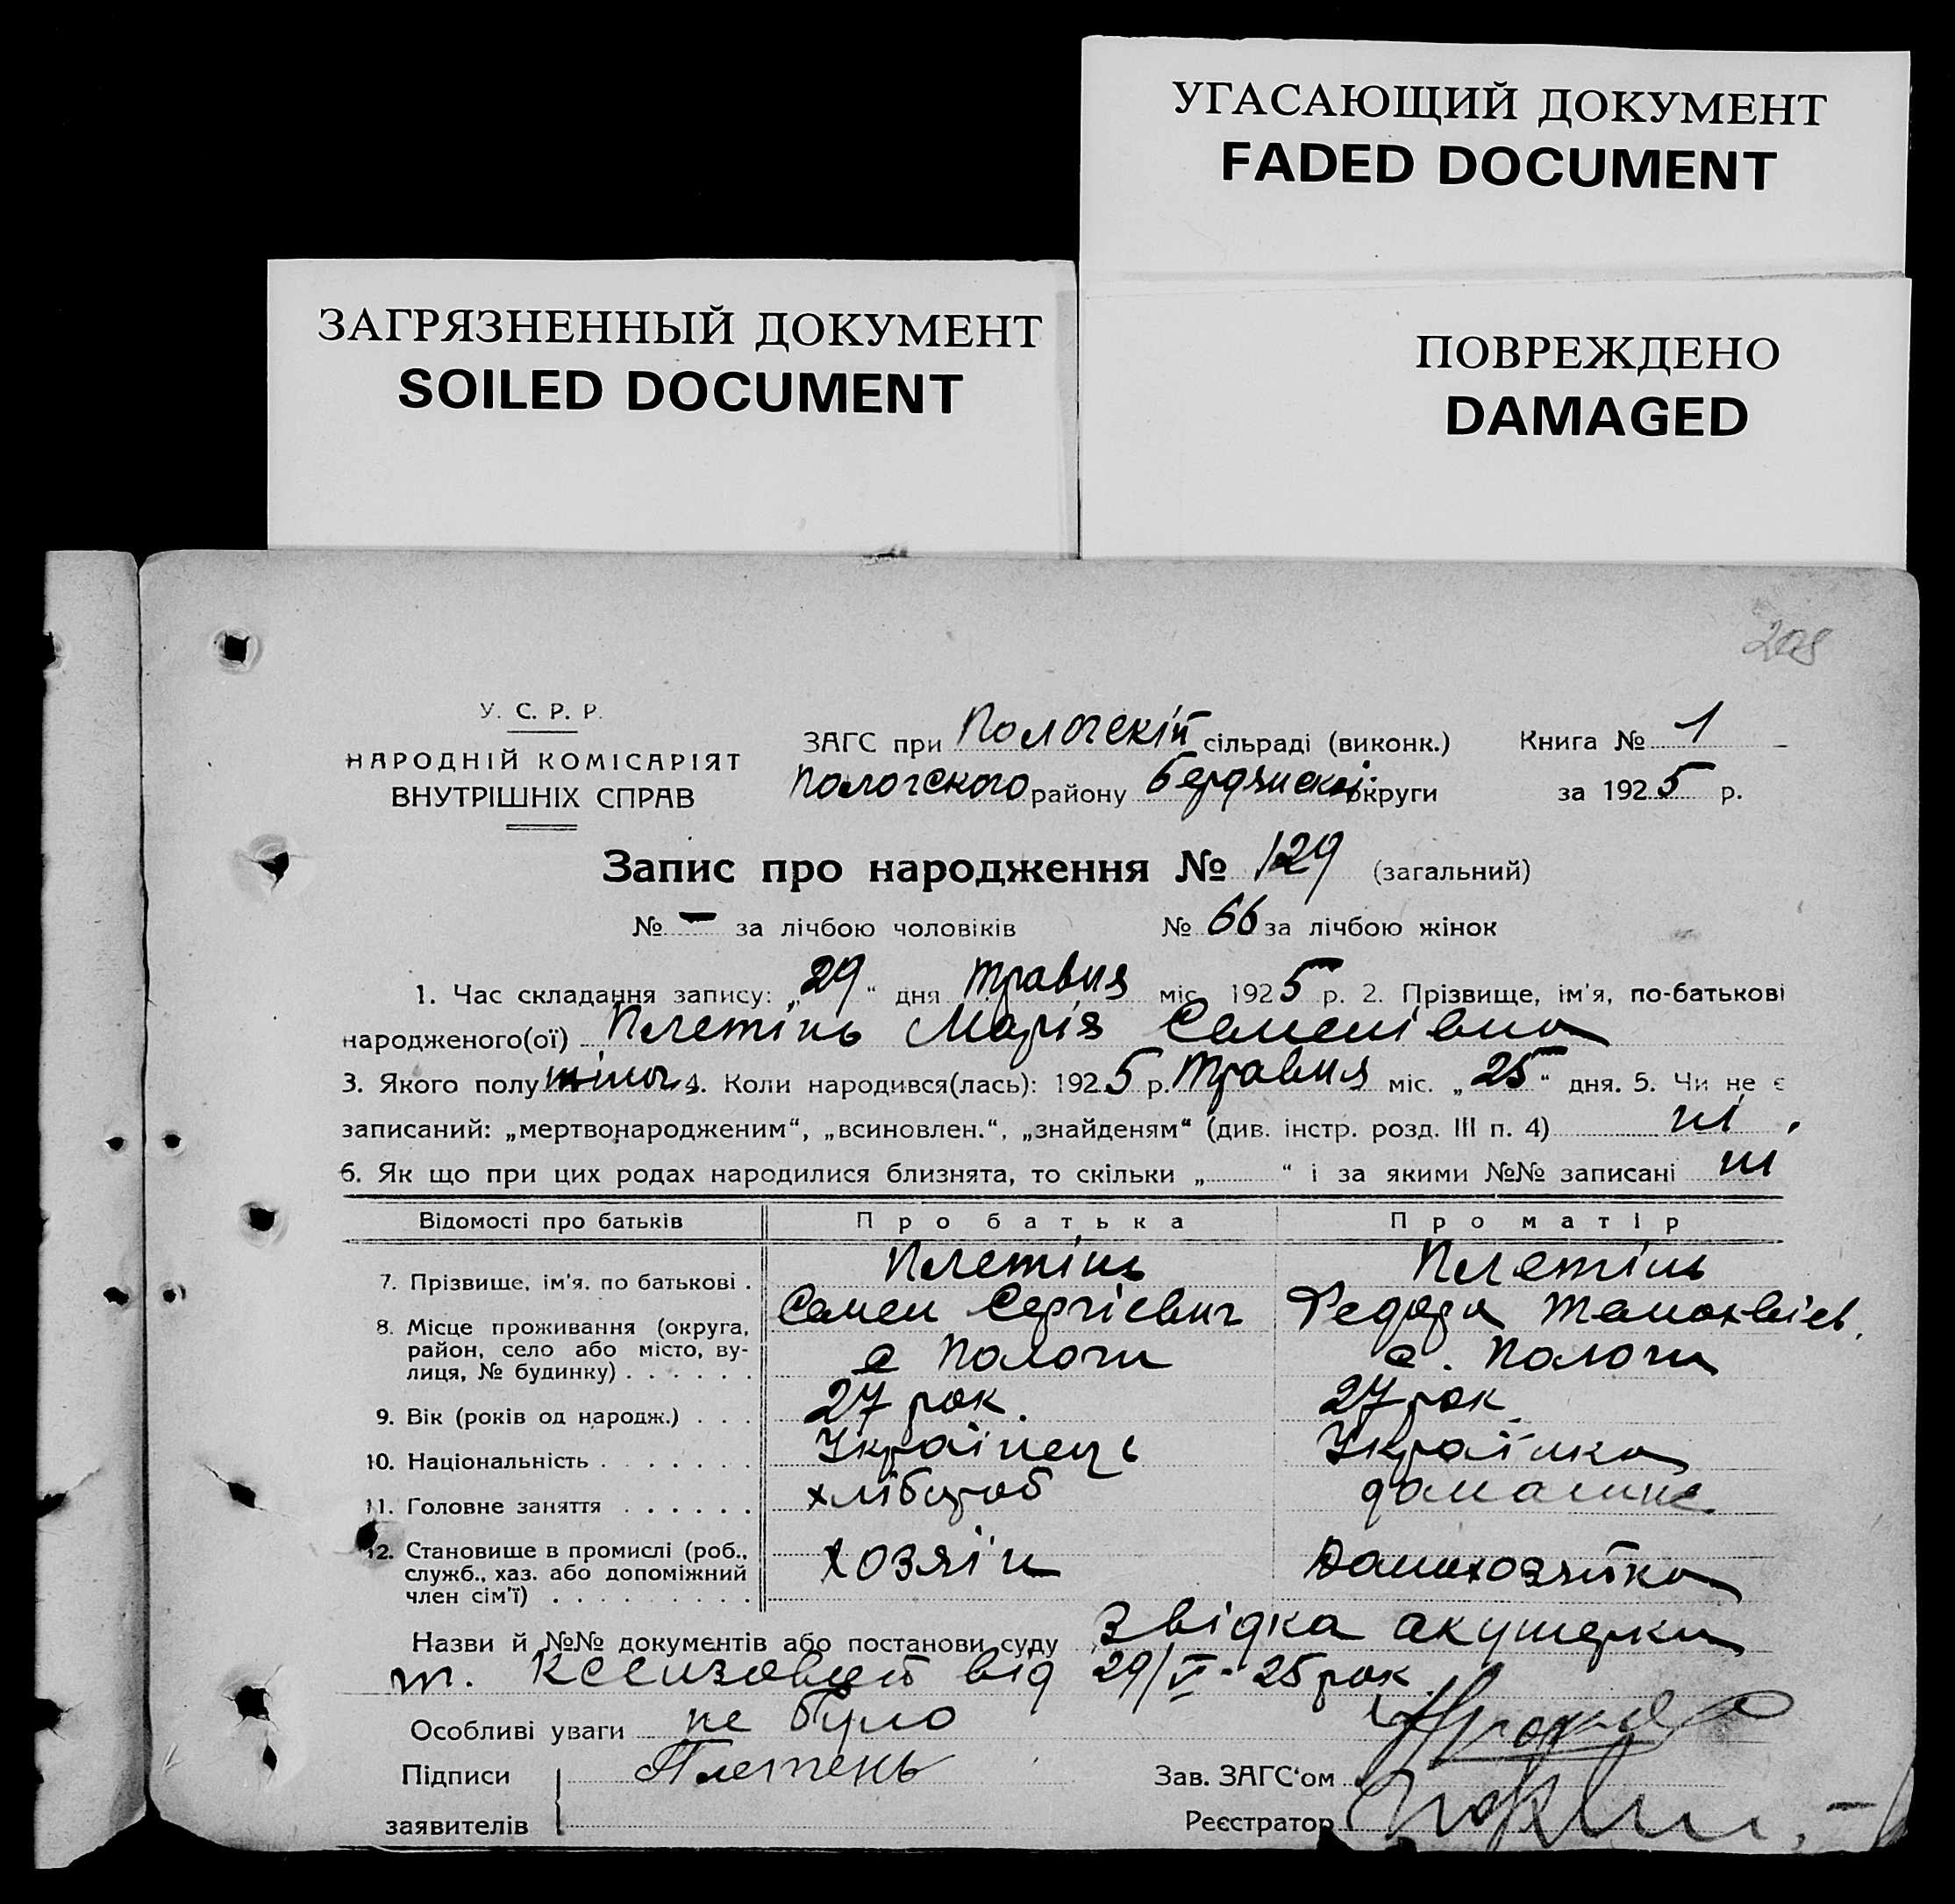 УГАСАЮЩИЙ ДОКУМЕНТ
FADED DOCUMENT
ЗАГРЯЗНЕННЫЙ ДОКУМЕНТ
SOILED DOCUMENT
ПОВРЕЖДЕНО
DAMAGED
208
У. С. Р. Р.
НАРОДНІЙ КОМІСАРІЯТ
ВНУТРІШНІХ СПРАВ
ЗАГС при Пологскій сільраді (виконк.) Книга № 1
Пологского району Бердянской округи за 1925 р.
Запис про народження № 129 (загальний)
№ — за лічбою чоловіків № 66 за лічбою жінок
1. Час складання запису: „29“ дня травня міс. 1925 р. 2. Прізвище, ім'я, по-батькові
народженого(ої) Плетінь Марія Семенівна
3. Якого полу 4. Коли народився(лась): 1925 р. травня міс. „25“ дня. 5. Чи не є
записаний: „мертвонародженим“, „всиновлен.“, „знайденям“ (див. інстр. розд. III п. 4) ні.
6. Як що при цих родах народилися близнята, то скільки „ “ і за якими №№ записані ні
Відомості про батьків Про батька Про матір
7. Прізвище, ім'я. по батькові . Плетінь Плетінь
Семен Сергієвич Федора
8. Місце проживання (округа,
район, село або місто, ву-
лиця, № будинку) . . . . . . с Пологи с. Пологи
9. Вік (років од народж.) . . . 27 рок. 27 рок
10. Національність . . . . . . . Українець Українка
11. Головне заняття . . . . . . хлібороб
12. Становище в промислі (роб.,
служб., хаз. або допоміжний
член сім'ї) . . . . . . . . . хозяін Домохозяйка
Назви й №№ документів або постанови суду Звідка акушерки
т. від 29/V-25 рок.
Особливі уваги не було
Підписи Плетень Зав. ЗАГС'ом
заявителів Реєстратор